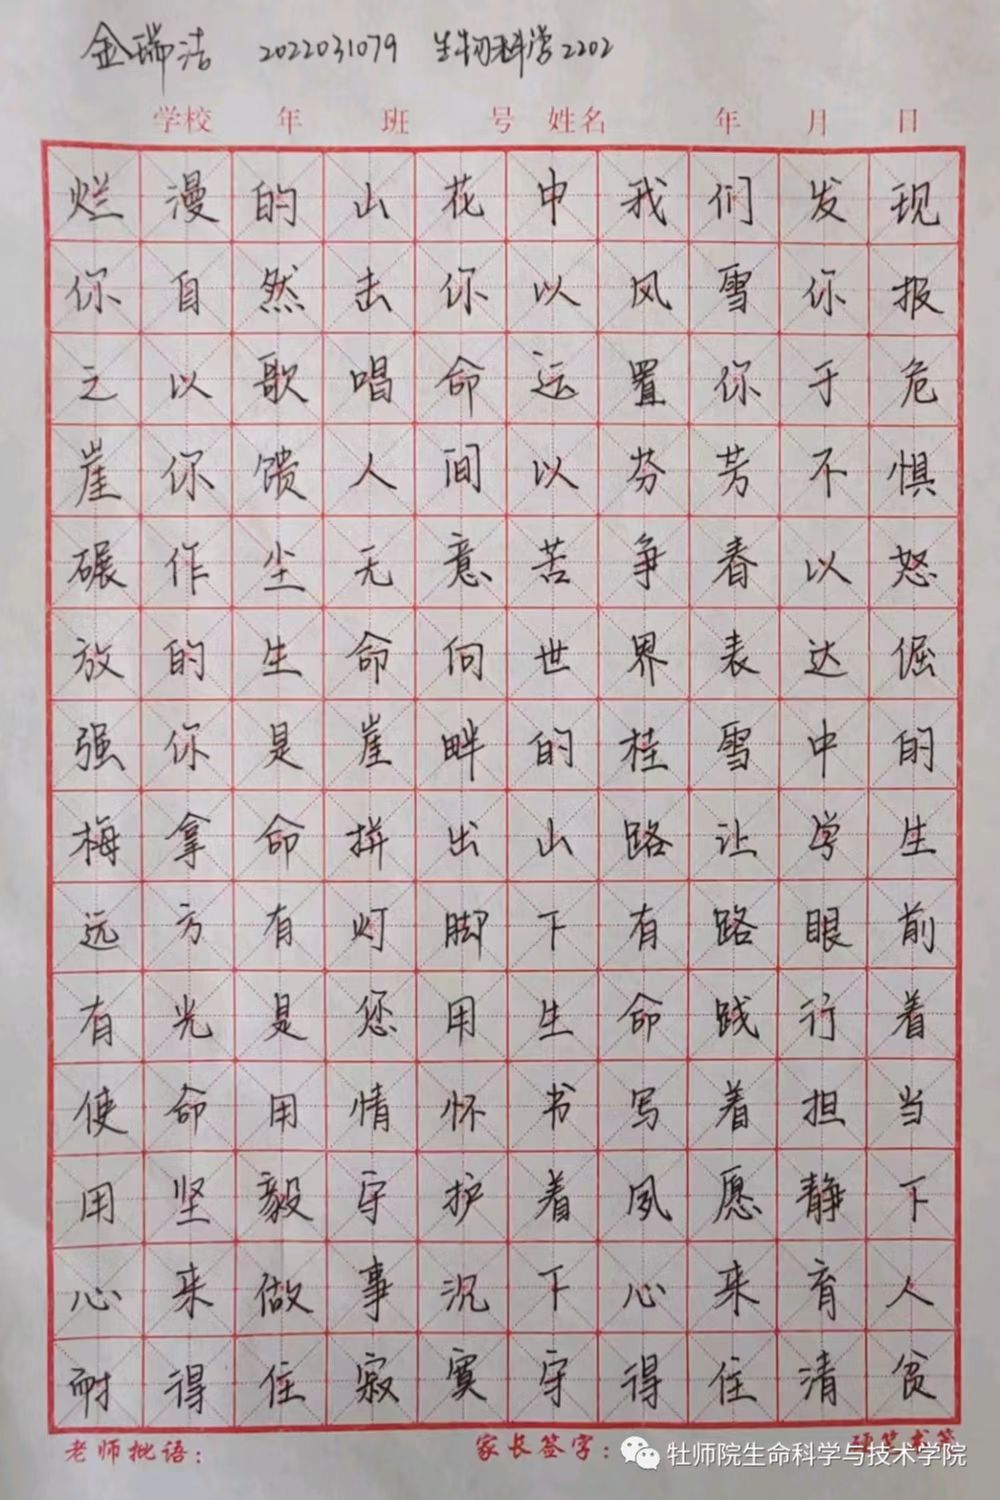 金瑞洁 2022031079 生物科学2202
学校 年 班 号 姓名 年 月 日
烂漫的山花中我们发现
你自然击你以风雪你报
之以歌唱命运置你于危
崖你馈人间以芬芳不惧
碾作尘无意苦争春以怒
放的生命向世界表达倔
强你是崖畔的桂雪中的
梅拿命拼出山路让学生
远方有灯脚下有路眼前
有光是您用生命践行着
使命用情怀书写着担当
用坚毅守护着夙愿静下
心来做事沉下心来育人
耐得住寂寞守得住清贫
老师批语： 家长签字： 硬笔书
牡师院生命科学与技术学院